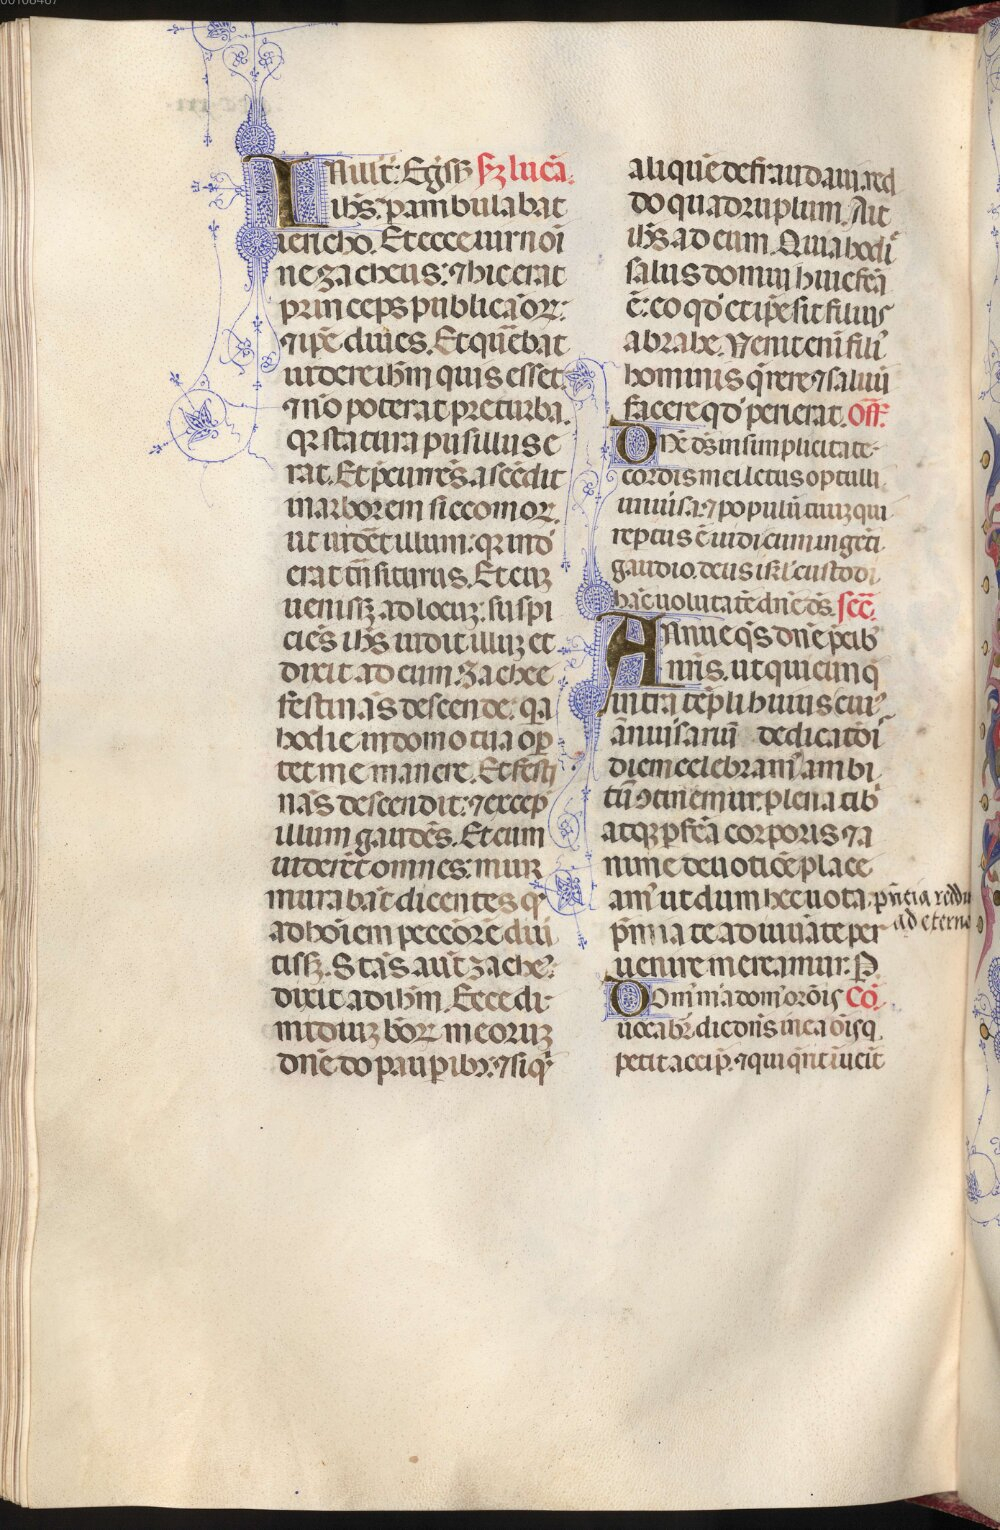 I nillt̄. Egr̄s ſz lucā.
ih̄s. p̄ambulabat
iericho. Et ecce uir noī
ne zacheus: ⁊ hic erat
princeps publicanoꝝ:
⁊ ip̄e diues. Et querebat
uidere ih̄m quis esset
⁊ nō poterat pre turba.
qꝛ statura pusillus e
rat. Et p̄currēs ascēdit
in arborem siccomoꝝ.
ut uidēt illum: qꝛ indō
erat trāsiturus. Et cuꝫ
uenissꝫ ad locuꝫ: suspi
ciēs ih̄s uidit illuꝫ et
dixit ad eum. Zachee
festinās descende. qꝛa
hodie in domo tua opꝫ
tet me manere. Et festi
nās descendit: ⁊ excep̄
illum gaudēs. Et cum
uiderēt omnes: mur
murabāt dicentes qꝙ
ad hoīem pecc̄orē diu̓
tissꝫ. Stās aut̄ zache᷒:
dixit ad ih̄m. Ecce di
midiuꝫ bōꝝ meoruꝫ
dn̄e do pauꝑibꝫ: ⁊ si qd̓
aliquē defraudaui. red
do quadruplum. Ait
ih̄s ad eum. Quia hodi̓
salus domui huic fc̄a
ē: eo qd̓ et ip̄e sit filius
abrahe. Uenit eni̅ fili᷒
hominis q̄rere ⁊ saluū
facere qd̓ perierat. Off̄.
Dn̄e dꝫ in simplicitate
cordis mei letus optulli
uniuīsa: ⁊ populū tuuꝫ qui
reptus ē uidi cum ingēti
gaudio. deus isrl̄ custodi
hāc uolūtatē dn̄e dꝫ. Sec̄.
Annue q̄s dn̄e p̄cib᷒
nr̄is. ut quicunqꝫ
intra tēpli huius cui᷒
ānuīsariū dedicatōi
diem celebram᷒ ambi
tū ꝯtinemur. plena tib᷒
atqꝫ ꝑfc̄a corporis ⁊ a
nime deuotiōe place
am᷒ ut dum hec uota. p̄ntia reddi
ad eterna
p̄mia te adiuuāte per
uenire mereamur. P.
Dom̄ mea dom᷒ orōis Co̅.
uocabr̄ dic dn̄s in ea oīsqꝫ
petit accip̄. ⁊ qui q̄rit īuēit